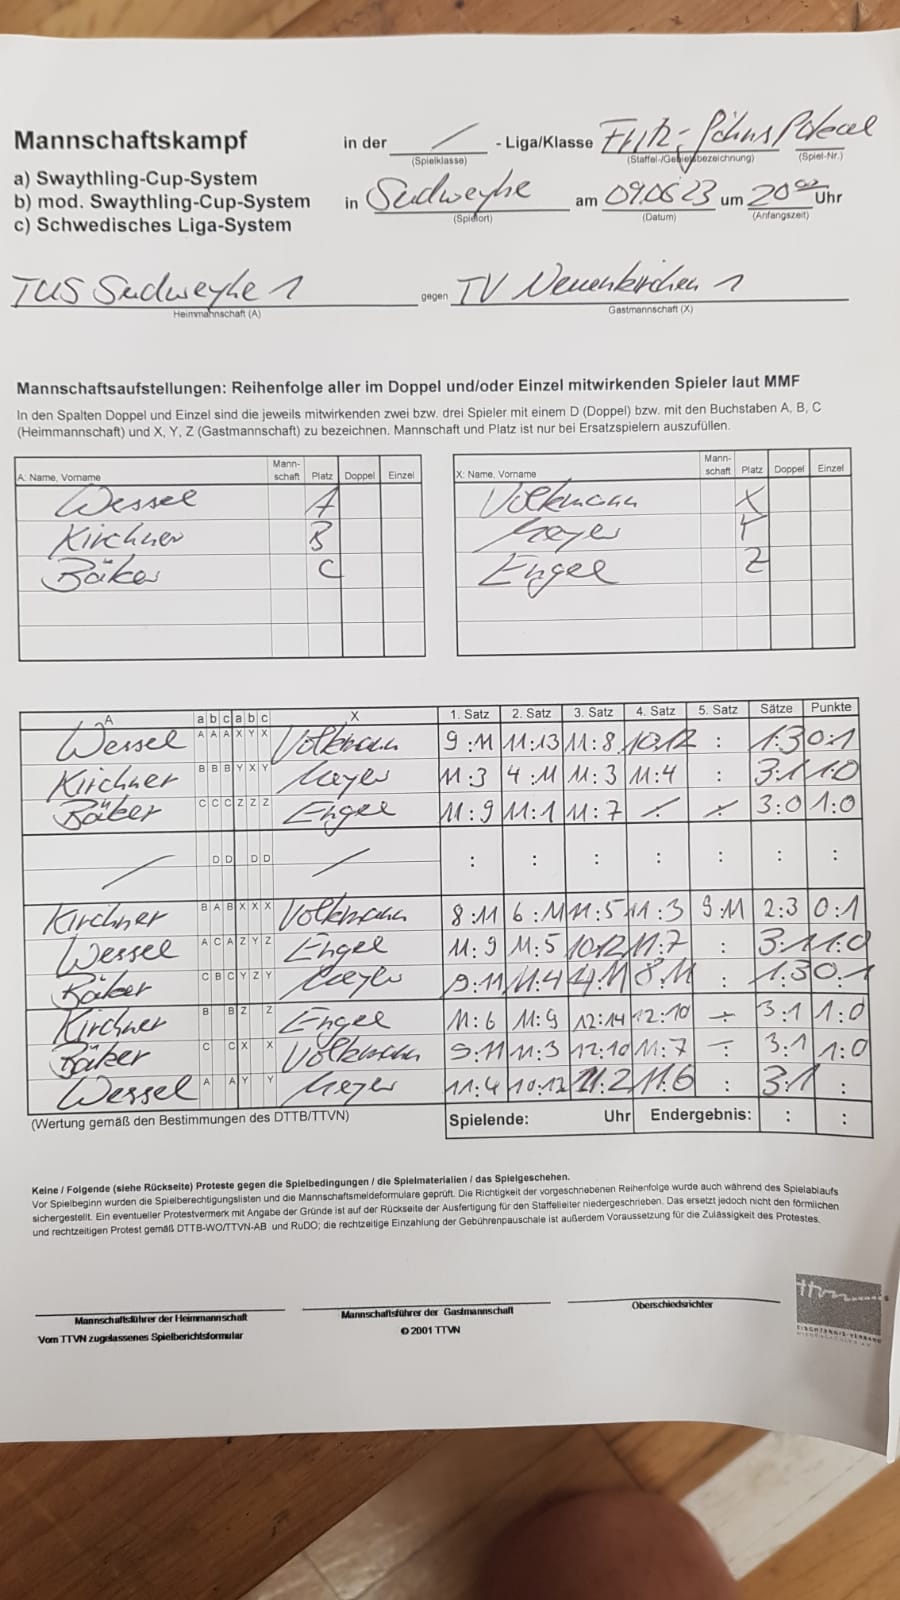 Mannschaftskampf
in der / - Liga/Klasse Fritz-Pöhns Pokal
(Spielklasse) (Staffel-/Gebietsbezeichnung) (Spiel-Nr.)
a) Swaythling-Cup-System
b) mod. Swaythling-Cup-System
c) Schwedisches Liga-System
in Sudweyhe am 09.06.23 um 20 00 Uhr
(Spielort) (Datum) (Anfangszeit)
TUS Sudweyhe 1 gegen TV Neuenkirchen 1
Heimmannschaft (A) Gastmannschaft (X)
Mannschaftsaufstellungen: Reihenfolge aller im Doppel und/oder Einzel mitwirkenden Spieler laut MMF
In den Spalten Doppel und Einzel sind die jeweils mitwirkenden zwei bzw. drei Spieler mit einem D (Doppel) bzw. mit den Buchstaben A, B, C
(Heimmannschaft) und X, Y, Z (Gastmannschaft) zu bezeichnen. Mannschaft und Platz ist nur bei Ersatzspielern auszufüllen.
A: Name, Vorname Mann-schaft Platz Doppel Einzel
Wessel A
Kirchner B
Bäker C
X: Name, Vorname Mann-schaft Platz Doppel Einzel
Volkmann X
Meyer Y
Engel Z
A a b c a b c X 1. Satz 2. Satz 3. Satz 4. Satz 5. Satz Sätze Punkte
Wessel A A A X Y X Volkmann 9:11 11:13 11:8 10:12 : 1:3 0:1
Kirchner B B B Y X Y Meyer 11:3 4:11 11:3 11:4 : 3:1 1:0
Bäker C C C Z Z Z Engel 11:9 11:1 11:7 / / 3:0 1:0
/ D D D D / : : : : : : :
Kirchner B A B X X X Volkmann 8:11 6:11 11:5 11:3 9:11 2:3 0:1
Wessel A C A Z Y Z Engel 11:9 11:5 10:12 11:7 : 3:1 1:0
Bäker C B C Y Z Y Meyer 9:11 11:4 4:11 8:11 : 1:3 0:1
Kirchner B B Z Z Engel 11:6 11:9 12:14 12:10 ÷ 3:1 1:0
Bäker C C X X Volkmann 9:11 11:3 12:10 11:7 ÷ 3:1 1:0
Wessel A A Y Y Meyer 11:4 10:12 11:2 11:6 : 3:1 :
(Wertung gemäß den Bestimmungen des DTTB/TTVN) Spielende: Uhr Endergebnis: : :
Keine / Folgende (siehe Rückseite) Proteste gegen die Spielbedingungen / die Spielmaterialien / das Spielgeschehen.
Vor Spielbeginn wurden die Spielberechtigungslisten und die Mannschaftsmeldeformulare geprüft. Die Richtigkeit der vorgeschriebenen Reihenfolge wurde auch während des Spielablaufs
sichergestellt. Ein eventueller Protestvermerk mit Angabe der Gründe ist auf der Rückseite der Ausfertigung für den Staffelleiter niedergeschrieben. Das ersetzt jedoch nicht den förmlichen
und rechtzeitigen Protest gemäß DTTB-WO/TTVN-AB und RuDO; die rechtzeitige Einzahlung der Gebührenpauschale ist außerdem Voraussetzung für die Zulässigkeit des Protestes.
Mannschaftsführer der Heimmannschaft Mannschaftsführer der Gastmannschaft Oberschiedsrichter
Vom TTVN zugelassenes Spielberichtsformular © 2001 TTVN
ttvn
TISCHTENNIS-VERBAND